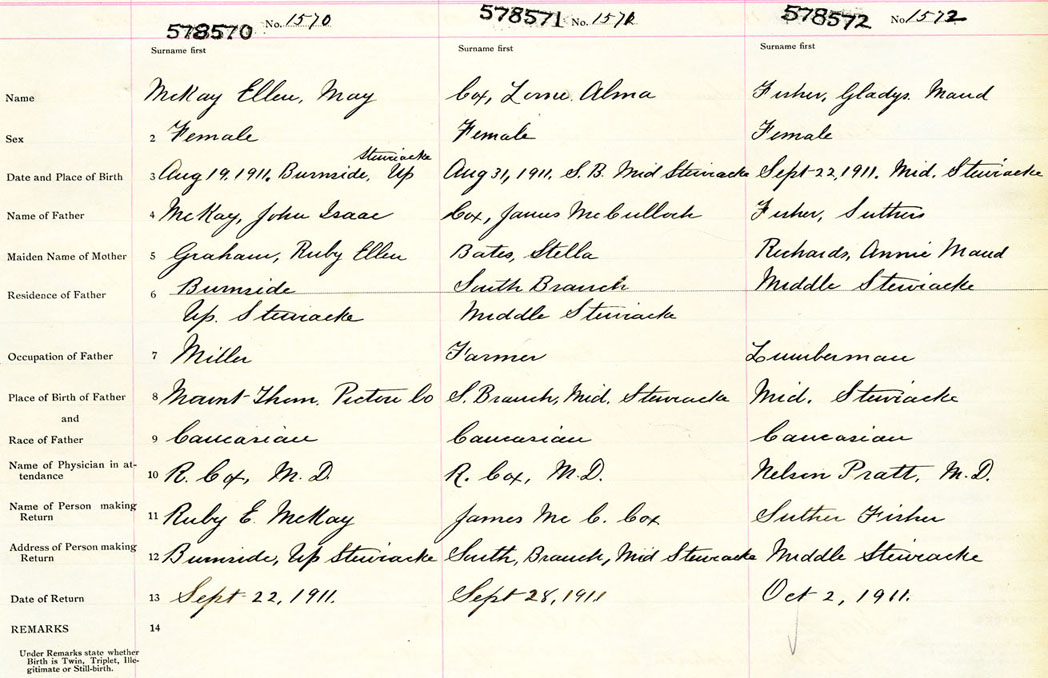 578570 No. 1570 578571 No. 1571 578572 No. 1572
Surname first Surname first Surname first
Name McKay Ellen, May Cox, Lorne Alma Fisher, Gladys Maud
Sex 2 Female Female Female
Stewiacke
Date and Place of Birth 3 Aug 19, 1911. Burnside, Up Aug 31, 1911. S. B. Mid Stewiacke Sept 22, 1911. Mid. Stewiacke
Name of Father 4 McKay, John Isaac Cox, James McCulloch Fisher, Suthers
Maiden Name of Mother 5 Graham, Ruby Ellen Bates, Stella Richards, Annie Maud
Residence of Father 6 Burnside South Branch Middle Stewiacke
Up. Stewiacke Middle Stewiacke
Occupation of Father 7 Miller Farmer Lumberman
Place of Birth of Father 8 Mount Thom. Pictou Co S. Branch, Mid. Stewiacke Mid. Stewiacke
and
Race of Father 9 Caucasian Caucasian Caucasian
Name of Physician in at-
tendance 10 R. Cox, M.D. R. Cox, M.D. Nelson Pratt, M.D.
Name of Person making
Return 11 Ruby E. McKay James Mc C. Cox Suther Fisher
Address of Person making
Return 12 Burnside, Up Stewiacke South, Branch, Mid Stewiacke Middle Stewiacke
Date of Return 13 Sept 22, 1911. Sept 28, 1911 Oct 2, 1911.
REMARKS 14
Under Remarks state whether
Birth is Twin, Triplet, Ille-
gitimate or Still-birth.